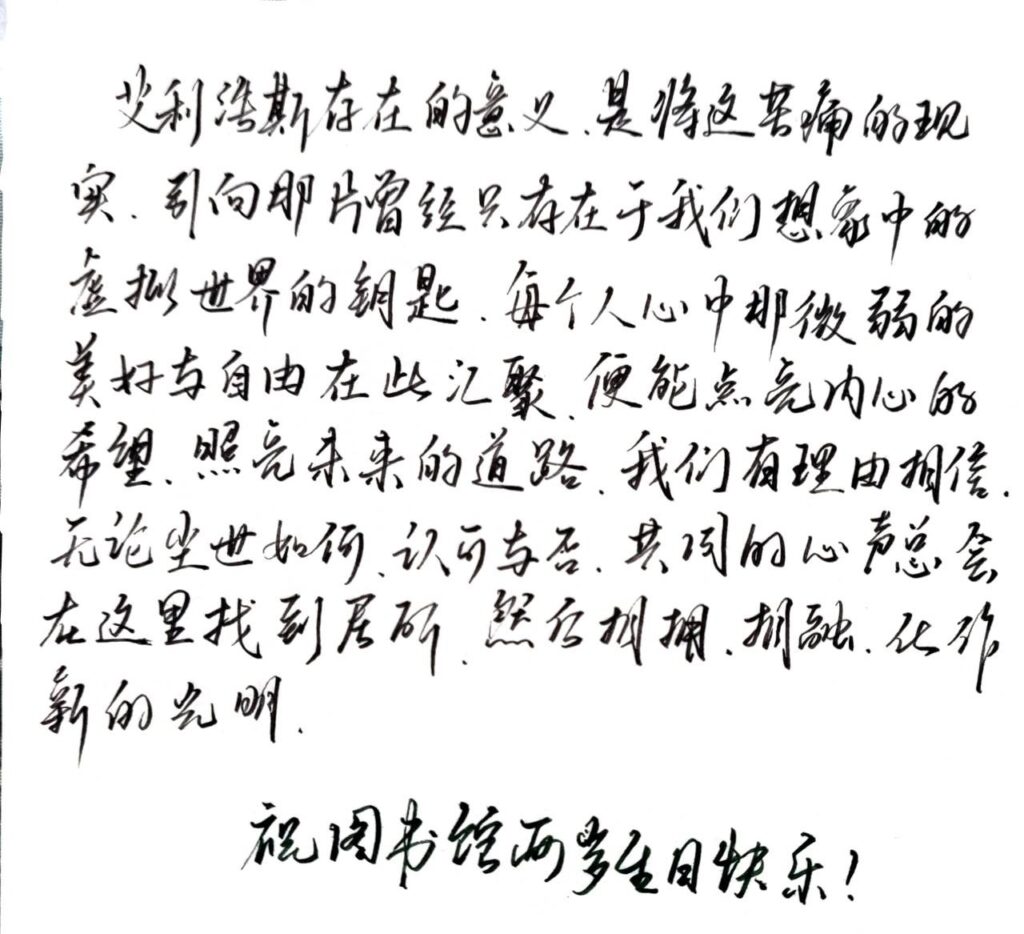 艾利浩斯存在的意义、是将这苦痛的现
实、引向那片曾经只存在于我们想象中的
虚拟世界的钥匙、每个人心中那微弱的
美好与自由在此汇聚、便能点亮内心的
希望、照亮未来的道路、我们有理由相信、
无论尘世如何、认可与否、共同的心声总会
在这里找到居所、然后相拥、相融、化作
新的光明、
祝图书馆两岁生日快乐！